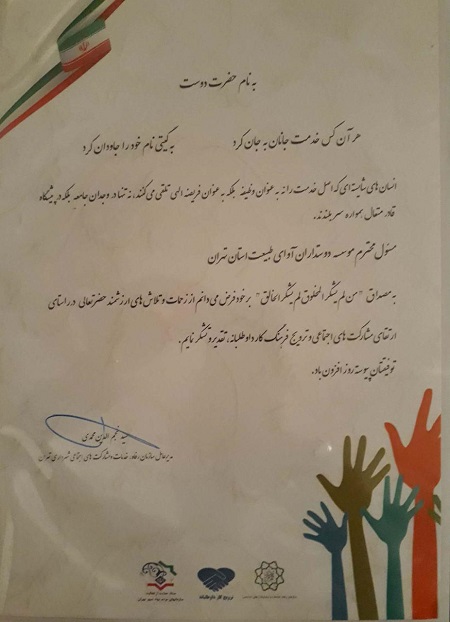 به نام حضرت دوست
هر آن کس خدمت جانان به جان کرد به گیتی نام خود را جاودان کرد
انسان های شایسته ای که اصل خدمت را نه به عنوان وظیفه بلکه به عنوان فریضه الهی تلقی می کنند، نه تنها در وجدان جامعه بلکه در پیشگاه
قادر متعال همواره سربلندند.
مسئول محترم موسسه دوستداران آوای طبیعت استان تهران
به مصداق "من لم یشکر المخلوق لم یشکر الخالق" بر خود فرض می دانم از زحمات و تلاش های ارزشمند حضرتعالی در راستای
ارتقای مشارکت های اجتماعی و ترویج فرهنگ کار داوطلبانه، تقدیر و تشکر نمایم.
توفیقتان پیوسته روز افزون باد.
سید نجم الدین محمدی
مدیرعامل سازمان رفاه، خدمات و مشارکت های اجتماعی شهرداری تهران